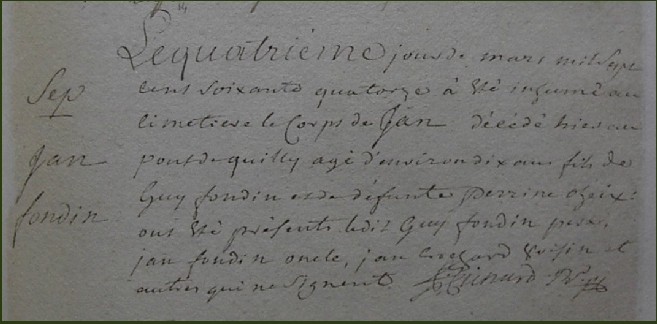 Le quatrième jour de mars mil sept
Sep cent soixante quatorze à été inhumé au
cimetiere le Corps de Jan décédé hier au
Jan pont de quilly agé d'environ dix ans fils de
fondin Guy fondin et de défunte perrine
ont été présents ledit Guy fondin pere,
jan fondin oncle, jan voisin et
autres qui ne signent